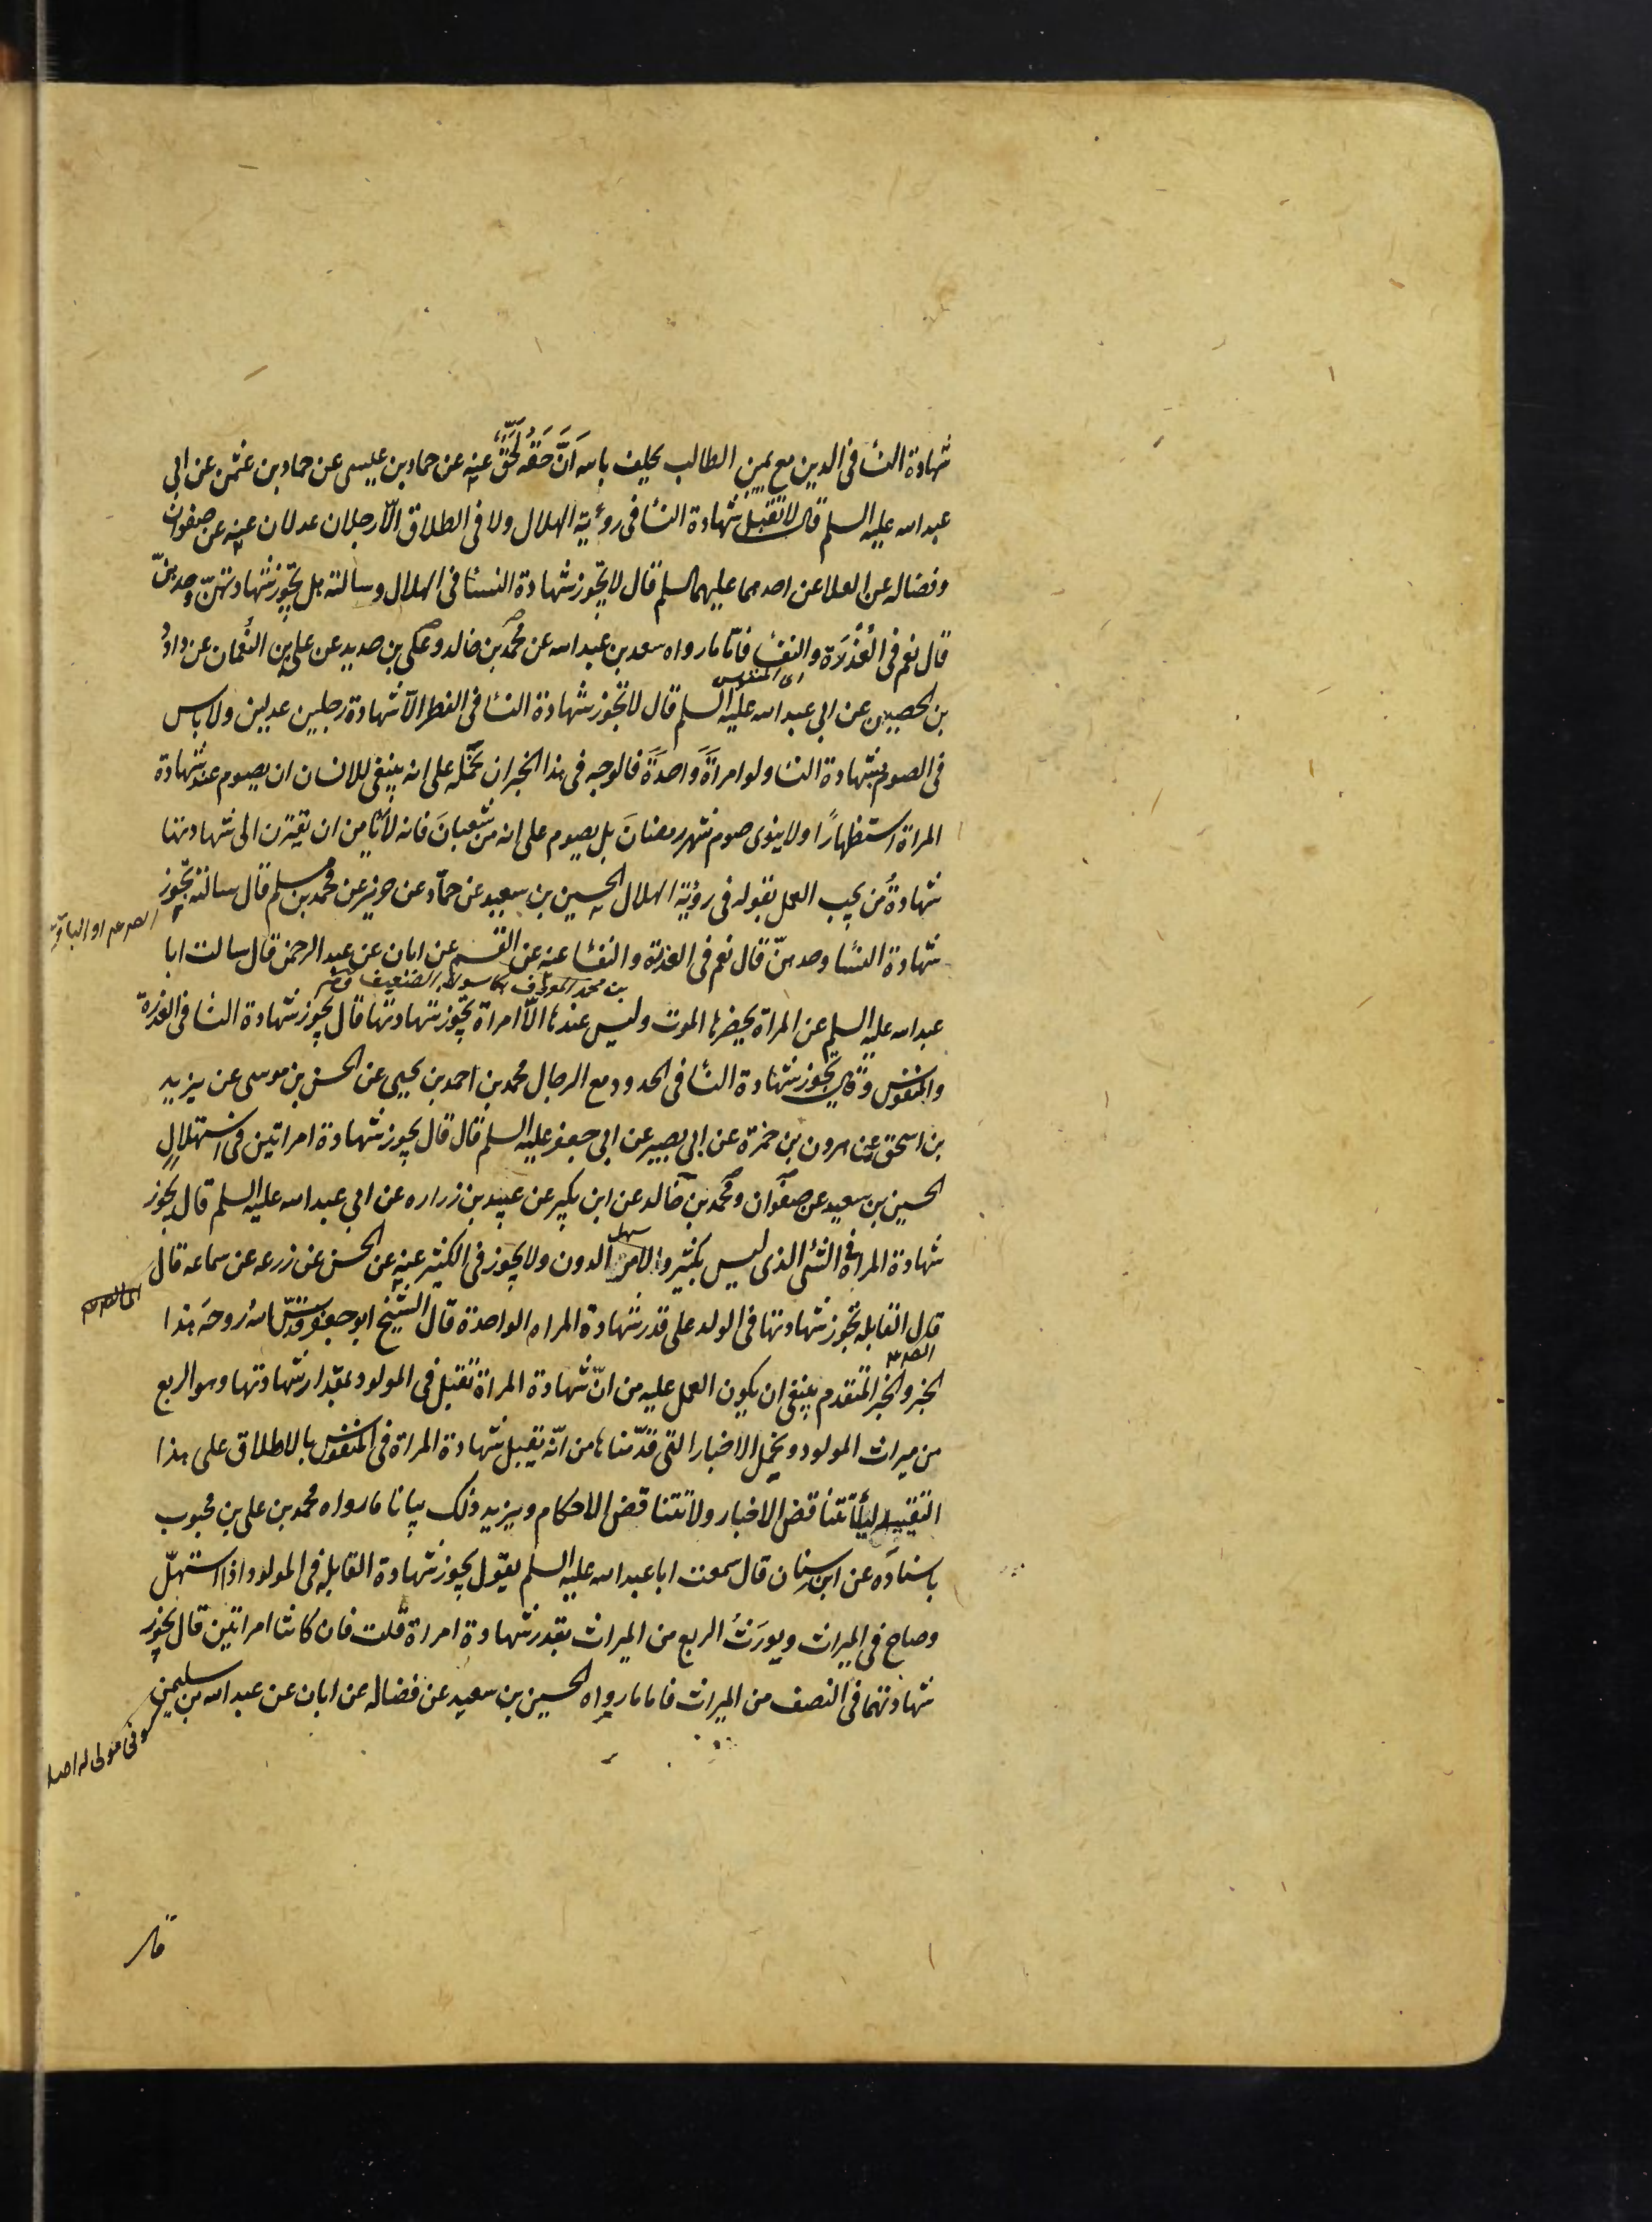 شهادة النسا فى الدين مع يمين الطالب يحلف بالله اَنَّ حَقَّه لَحَقٌّ عنه عن حماد بن عيسى عن حماد بن عثمن عن ابى
عبد الله عليه السلم قال لا تقبل شهادة النسا فى رؤية الهلال ولا فى الطلاق الّا رجلان عدلان عنه عن صفوان
وفضاله عن العلا عن احدهما عليهما السلم قال لا يجوز شهادة النسا فى الهلال وسالته هل يجوز شهادتهنّ وحدهنّ
قال نعم فى العُذْرَة والنفسا فامّا ما رواه سعد بن عبد الله عن محمّد بن خالد وعلى بن حديد عن على بن النُعمان عن داودُ
اى المنفوس
بن الحصين عن ابى عبد الله عليه السلم قال لا تجوز شهادة النسا فى الفطر الّا شهادة رجلين عدلين ولا باس
فى الصوم بشهادة النسا ولو امراةً واحدةً فالوجه فى هذا الخبر ان نحمله على انه ينبغى للانسان ان يصوم عند شهادة
المراة استظهارًا ولا ينوى صوم شهر رمضانَ بل يصوم على انه من شعبانَ فانه لا يامن ان يقترن الى شهادتها
شهادةُ من يجب العمل بقوله فى رؤية الهلال الحسين بن سعيد عن حمّاد عن حريز عن محمد بن مسلم قال سالته تجوز
شهادة النسا وحدهنّ قال نعم فى العذرة والنفسا عنه عن القسم عن ابان عن عبد الرحمن قال سالت ابا
عبد الله عليه السلم عن المراة يحضرها الموت وليس عندها الّا امراة تجوز شهادتها قال يجوز شهادة النسا فى العذرة
والمنفوس وقال يجوز شهادة النسا فى الحدود مع الرجال محمد بن احمد بن يحيى عن الحسن بن موسى عن يزيد
بن اسحق عن هرون بن حمزة عن ابى بصير عن ابى جعفر عليه السلم قال قال يجوز شهادة امراتين فى استهلالٍ
الحسين بن سعيد عن صفوان ومحمد بن خالد عن ابن بكير عن عبيد بن زراره عن ابى عبد الله عليه السلم قال يجوز
شهادة المراة فى الشئ الذى ليس بكثير والامر الدون ولا يجوز فى الكثير عنه عن الحسن عن زرعه عن سماعه قال
سهل
قال القابله تجوز شهادتها فى الولد على قدر شهادة المراه الواحدة قال الشيخ ابو جعفر قدّس الله روحَه هذا
الخبر والخبر المتقدم ينبغى ان يكون العمل عليه من انّ شهادة المراة تقبل فى المولود بمقدار شهادتها وهو الربع
من ميراث المولود ويحمل الاخبار التى قدّمناها من انّه يقبل شهادة المراة فى المنفوس بالاطلاق على هذا
التقييد ليلّا تتناقض الاخبار ولا تتناقض الاحكام ويزيد ذلك بيانا ما رواه محمد بن على بن محبوب
باسناده عن ابن سنان قال سمعت ابا عبد الله عليه السلم يقول يجوز شهادة القابله فى المولود اذا استهلّ
وصاح فى الميراث ويورَثُ الربع من الميراث بقدر شهادة امراة قلت فان كانتا امراتين قال يجوز
شهادتهما فى النصف من الميراث فاما ما رواه الحسين بن سعيد عن فضاله عن ابان عن عبد الله بن سليمن